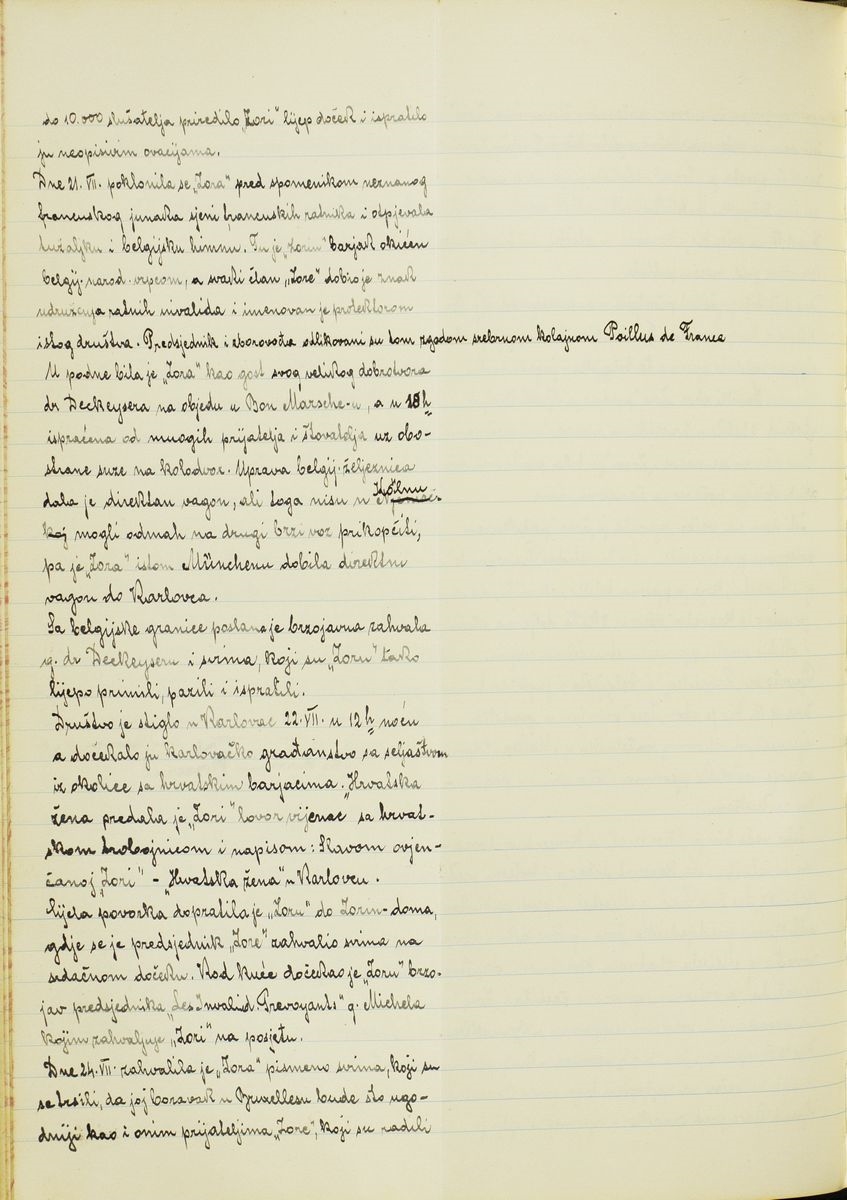 do 10.000 slušatelja priredilo „Zori" lijep doček i ispratilo
ju neopisivim ovacijama.
Dne 21. VII. poklonila se „Zora" pred spomenikom neznanog
francuskog junaka sjeni francuskih ratnika i otpjevala
tužaljku i belgijsku himnu. Tu je „Zorin" barjak okićen
belgij. narod. vrpcom, a svaki član „Zore" dobio je znak
udruženja ratnih invalida i imenovan je protektorom
istog društva. Predsjednik i zborovođa odlikovani su tom zgodom srebrnom kolajnom Poillus de France
U podne bila je „Zora" kao gost svog velikog dobrotvora
dr Deckeysera na objedu u Bon Marsche-u, a u 18 h
ispraćena od mnogih prijatelja i štovatelja uz obo-
strane suze na kolodvor. Uprava belgij. željeznica
dala je direktan vagon, ali toga nisu u Kölnu
mogli odmah na drugi brzi voz prikopčiti,
pa je „Zora" istom Münchenu dobila direktni
vagon do Karlovca.
Sa belgijske granice poslana je brzojavna zahvala
g. dr Deckeyseru i svima, koji su „Zoru" tako
lijepo primili, pazili i ispratili.
Društvo je stiglo u Karlovac 22. VII. u 12 h noću
a dočekalo ju karlovačko građanstvo sa seljaštvom
iz okolice sa hrvatskim barjacima. „Hrvatska
žena predala je „Zori" lovor vijenac sa hrvat-
skom trobojnicom i napisom: Slavom ovjen-
čanoj „Zori" - „Hrvatska žena" u Karlovcu.
Lijepa povorka dopratila je „Zoru" do Zorin-doma,
gdje se je predsjednik „Zore" zahvalio svima na
srdačnom dočeku. Kod kuće dočekao je „Zoru" brzo-
jav predsjednika „Les Invalid. Prevoyants" g. Michela
kojim zahvaljuje „Zori" na posjetu.
Dne 24. VII. zahvalila je „Zora" pismeno svima, koji su
se trsili, da joj boravak u Bruxellesu bude što ugo-
dniji kao i onim prijateljima „Zore", koji su radili